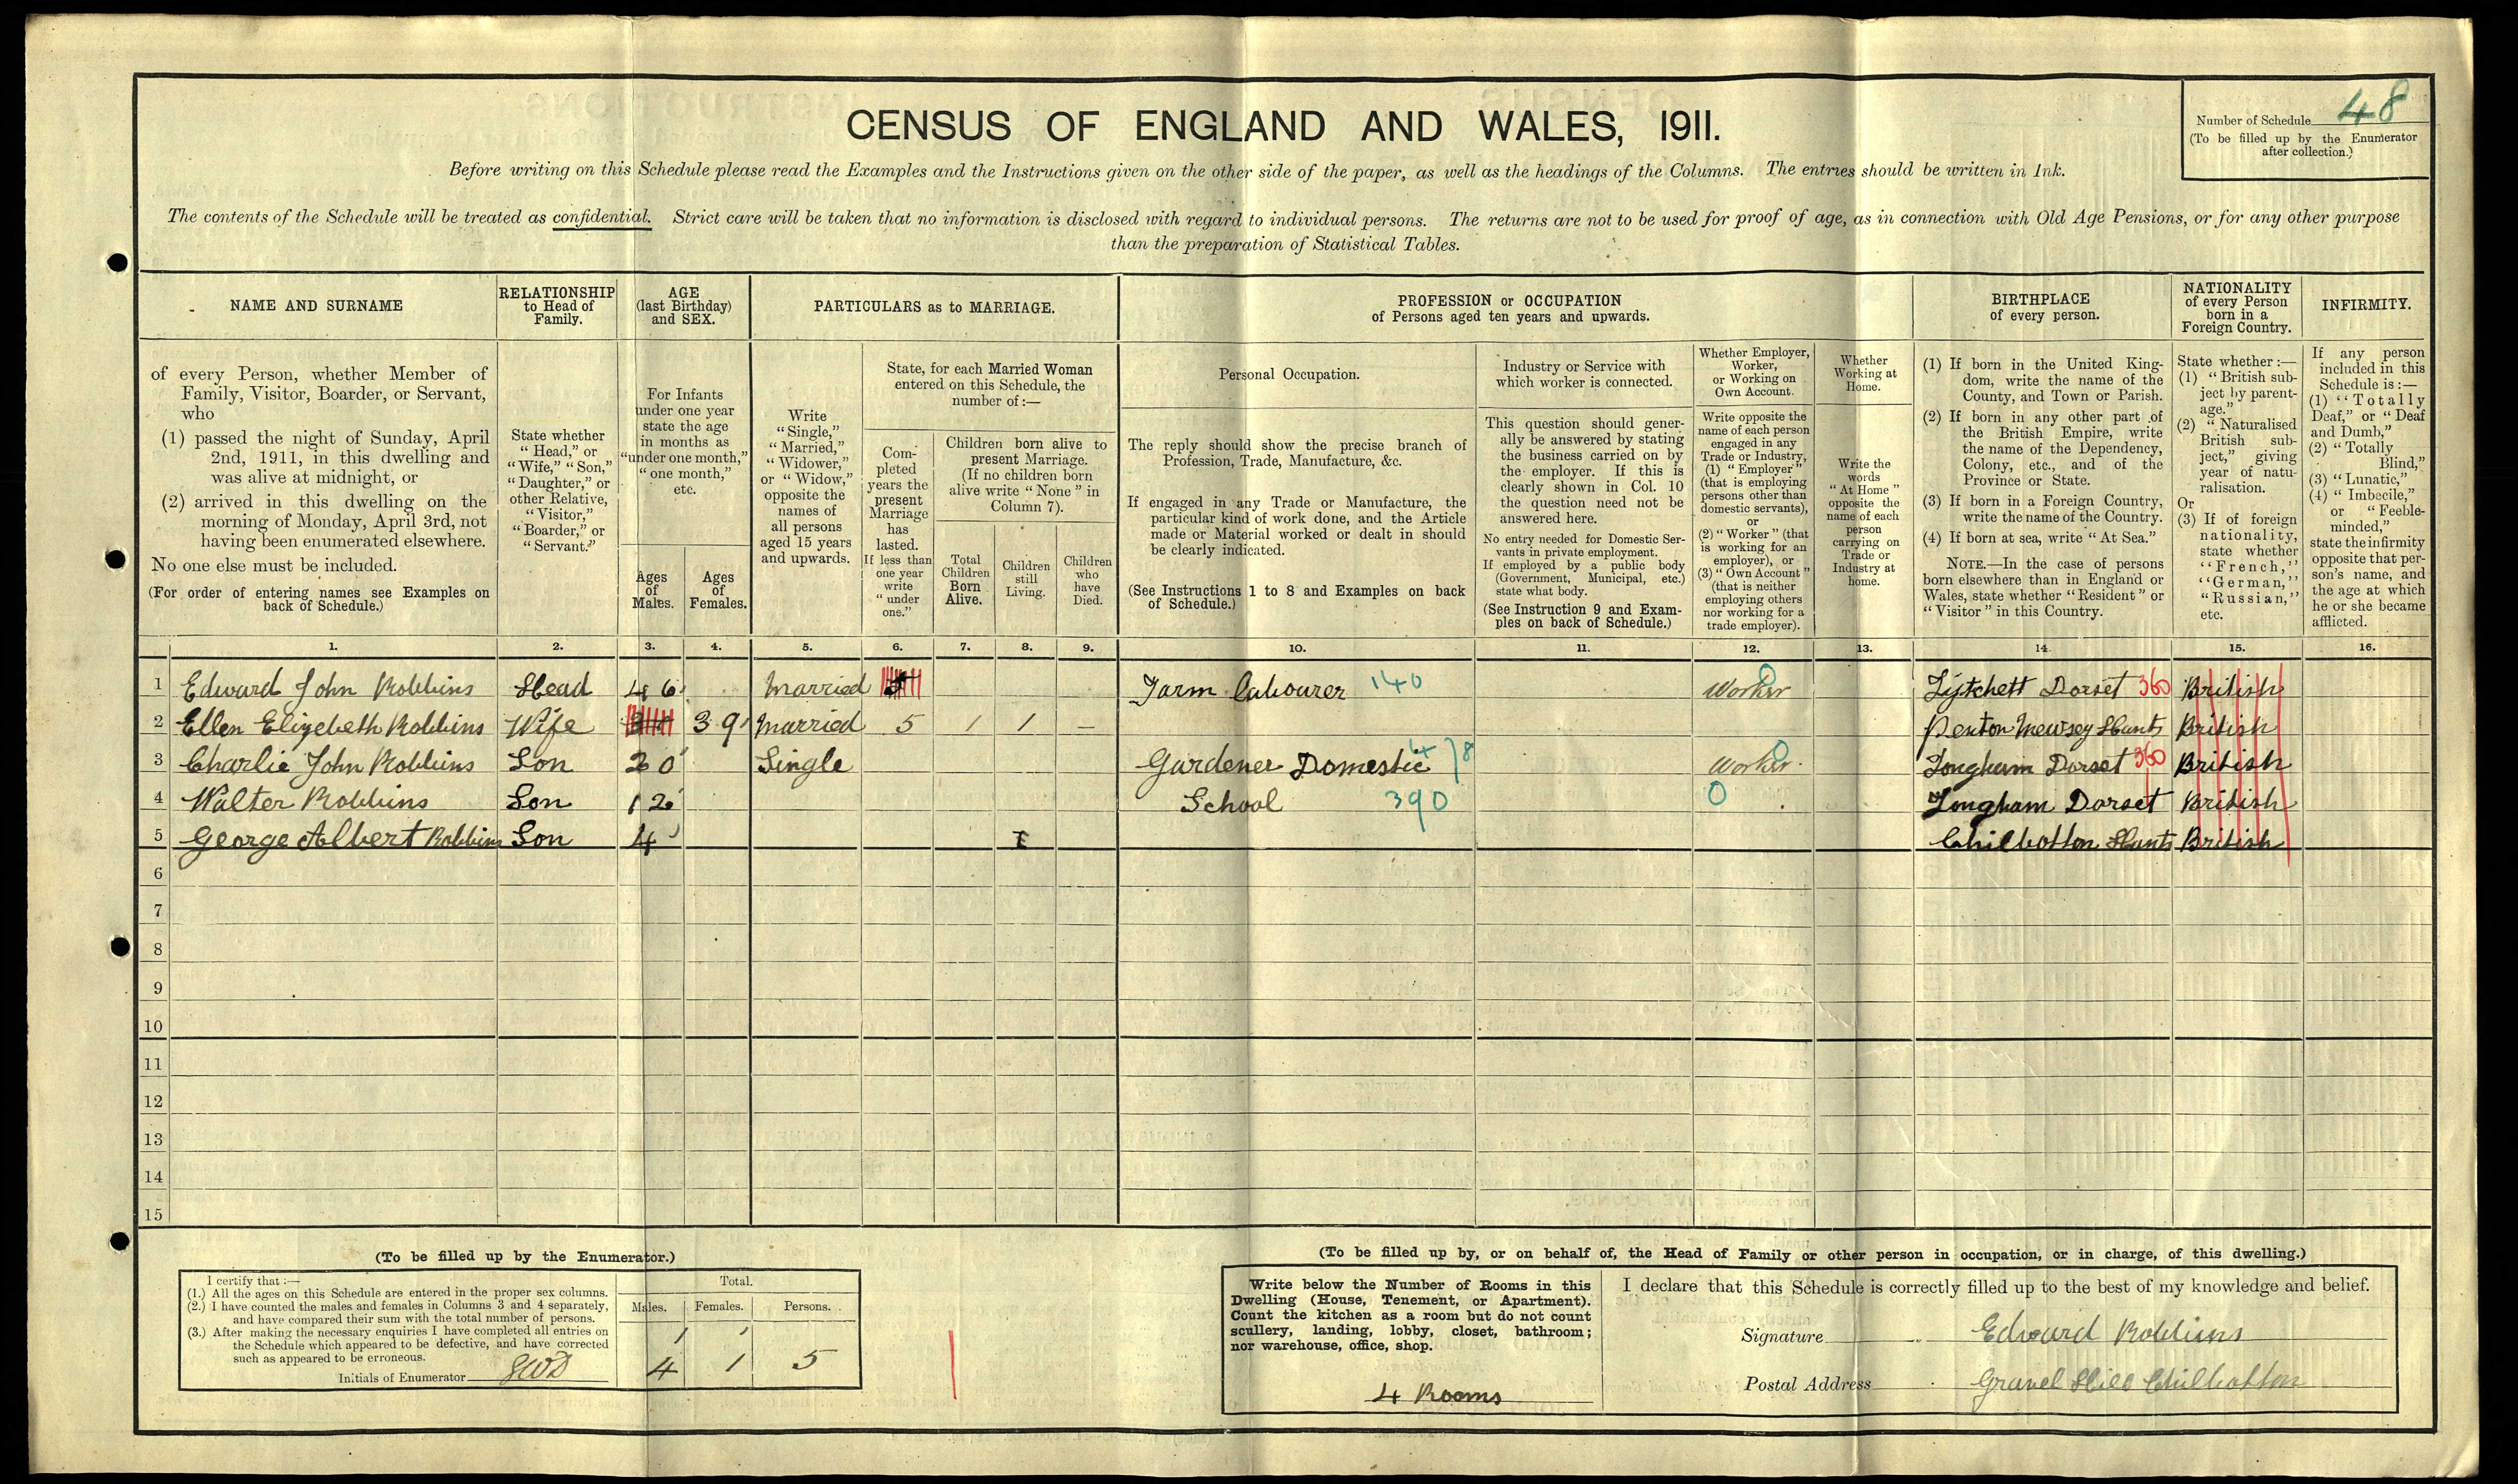 CENSUS OF ENGLAND AND WALES, 1911.
Number of Schedule 48
(To be filled up by the Enumerator
after collection.)
Before writing on this Schedule please read the Examples and the Instructions given on the other side of the paper, as well as the headings of the Columns. The entries should be written in Ink.
The contents of the Schedule will be treated as confidential. Strict care will be taken that no information is disclosed with regard to individual persons. The returns are not to be used for proof of age, as in connection with Old Age Pensions, or for any other purpose
than the preparation of Statistical Tables.
NAME AND SURNAME
of every Person, whether Member of
Family, Visitor, Boarder, or Servant,
who
(1) passed the night of Sunday, April
2nd, 1911, in this dwelling and
was alive at midnight, or
(2) arrived in this dwelling on the
morning of Monday, April 3rd, not
having been enumerated elsewhere.
No one else must be included.
(For order of entering names see Examples on
back of Schedule.)
RELATIONSHIP
to Head of
Family.
State whether
"Head," or
"Wife," "Son,"
"Daughter," or
other Relative,
"Visitor,"
"Boarder," or
"Servant."
AGE
(last Birthday)
and SEX.
For Infants
under one year
state the age
in months as
"under one month,"
"one month,"
etc.
Ages
of
Males.
Ages
of
Females.
PARTICULARS as to MARRIAGE.
Write
"Single,"
"Married,"
"Widower,"
or "Widow,"
opposite the
names of
all persons
aged 15 years
and upwards.
State, for each Married Woman
entered on this Schedule, the
number of :—
Com-
pleted
years the
present
Marriage
has
lasted.
If less than
one year
write
"under
one."
Children born alive to
present Marriage.
(If no children born
alive write "None" in
Column 7).
Total
Children
Born
Alive.
Children
still
Living.
Children
who
have
Died.
PROFESSION or OCCUPATION
of Persons aged ten years and upwards.
Personal Occupation.
The reply should show the precise branch of
Profession, Trade, Manufacture, &c.
If engaged in any Trade or Manufacture, the
particular kind of work done, and the Article
made or Material worked or dealt in should
be clearly indicated.
(See Instructions 1 to 8 and Examples on back
of Schedule.)
Industry or Service with
which worker is connected.
This question should gener-
ally be answered by stating
the business carried on by
the employer. If this is
clearly shown in Col. 10
the question need not be
answered here.
No entry needed for Domestic Ser-
vants in private employment.
If employed by a public body
(Government, Municipal, etc.)
state what body.
(See Instruction 9 and Exam-
ples on back of Schedule.)
Whether Employer,
Worker,
or Working on
Own Account.
Write opposite the
name of each person
engaged in any
Trade or Industry,
(1) "Employer"
(that is employing
persons other than
domestic servants),
or
(2) "Worker" (that
is working for an
employer), or
(3) "Own Account"
(that is neither
employing others
nor working for a
trade employer).
Whether
Working at
Home.
Write the
words
"At Home"
opposite the
name of each
person
carrying on
Trade or
Industry at
home.
BIRTHPLACE
of every person.
(1) If born in the United King-
dom, write the name of the
County, and Town or Parish.
(2) If born in any other part of
the British Empire, write
the name of the Dependency,
Colony, etc., and of the
Province or State.
(3) If born in a Foreign Country,
write the name of the Country.
(4) If born at sea, write "At Sea."
NOTE.—In the case of persons
born elsewhere than in England or
Wales, state whether "Resident" or
"Visitor" in this Country.
NATIONALITY
of every Person
born in a
Foreign Country.
State whether :—
(1) "British sub-
ject by parent-
age."
(2) "Naturalised
British sub-
ject," giving
year of natu-
ralisation.
Or
(3) If of foreign
nationality,
state whether
"French,"
"German,"
"Russian,"
etc.
INFIRMITY.
If any person
included in this
Schedule is :—
(1) "Totally
Deaf," or "Deaf
and Dumb,"
(2) "Totally
Blind,"
(3) "Lunatic,"
(4) "Imbecile,"
or "Feeble-
minded,"
state the infirmity
opposite that per-
son's name, and
the age at which
he or she became
afflicted.
1. 2. 3. 4. 5. 6. 7. 8. 9. 10. 11. 12. 13. 14. 15. 16.
1 Edward John Robbins Head 46 Married 5 Farm Labourer 140 Worker Lytchett Dorset 360 British
2 Ellen Elizebeth Robbins Wife 39 Married 5 1 1 – Penton Mewsey Hants British
3 Charlie John Robbins Son 20 Single Gardener Domestic Worker Longham Dorset 360 British
4 Walter Robbins Son 12 School 390 0 Longham Dorset British
5 George Albert Robbins Son 4 Chilbolton Hants British
6
7
8
9
10
11
12
13
14
15
(To be filled up by the Enumerator.)
I certify that :—
(1.) All the ages on this Schedule are entered in the proper sex columns.
(2.) I have counted the males and females in Columns 3 and 4 separately,
and have compared their sum with the total number of persons.
(3.) After making the necessary enquiries I have completed all entries on
the Schedule which appeared to be defective, and have corrected
such as appeared to be erroneous.
Initials of Enumerator
Total.
Males. Females. Persons.
4 1 5
(To be filled up by, or on behalf of, the Head of Family or other person in occupation, or in charge, of this dwelling.)
Write below the Number of Rooms in this
Dwelling (House, Tenement, or Apartment).
Count the kitchen as a room but do not count
scullery, landing, lobby, closet, bathroom;
nor warehouse, office, shop.
4 Rooms
I declare that this Schedule is correctly filled up to the best of my knowledge and belief.
Signature Edward Robbins
Postal Address Gravel Hill Chilbolton